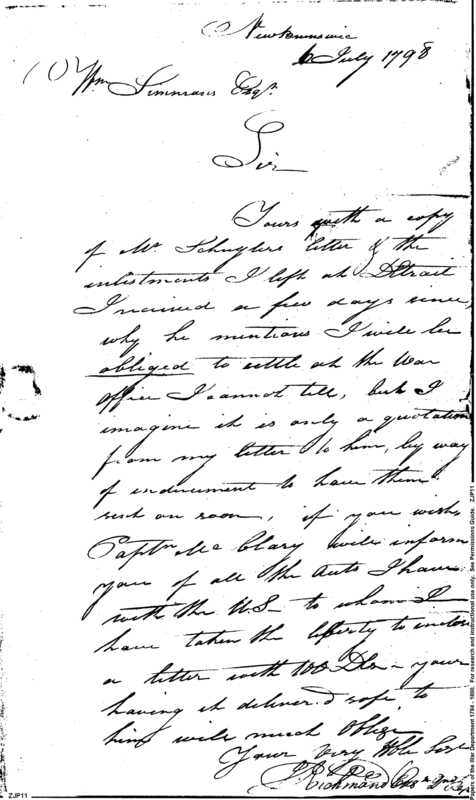 Newbrunswic
6 July 1798
Wm Simmons Esqr.
Sir
Yours with a copy
of Mr Schuylers letter & the
inlistments I left at Detroit
I received a few days since,
why he mentions I will be
obliged to settle at the War
office I cannot tell, but I
imagine it is only a quotation
from my letter to him, by way
of inducement to have them
sent on soon, if you wish
Captn McClary will inform
you of all the Accts I have
with the U.S. to whom I
have taken the liberty to inclose
a letter with 100 Dls - your
having it deliver.d safe to
him will much oblige
Your very Hble Sert
Richmond
ZJP11
Papers of the War Department 1784 - 1800. For research and instructional use only. See Permissions Guide. ZJP11